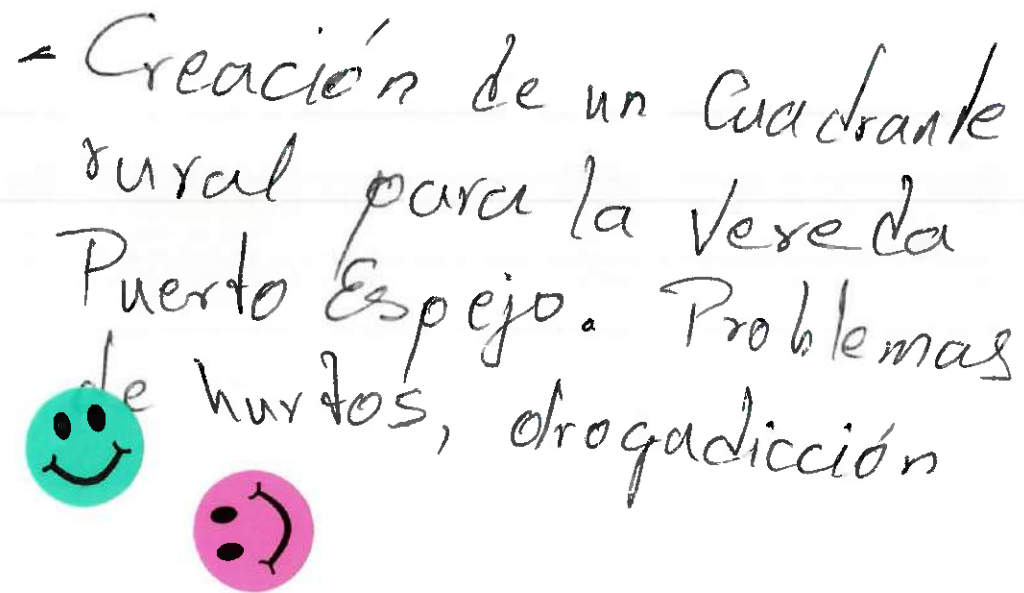 - Creación de un Cuadrante
rural para la Vereda
Puerto Espejo. Problemas
de hurtos, drogadicción